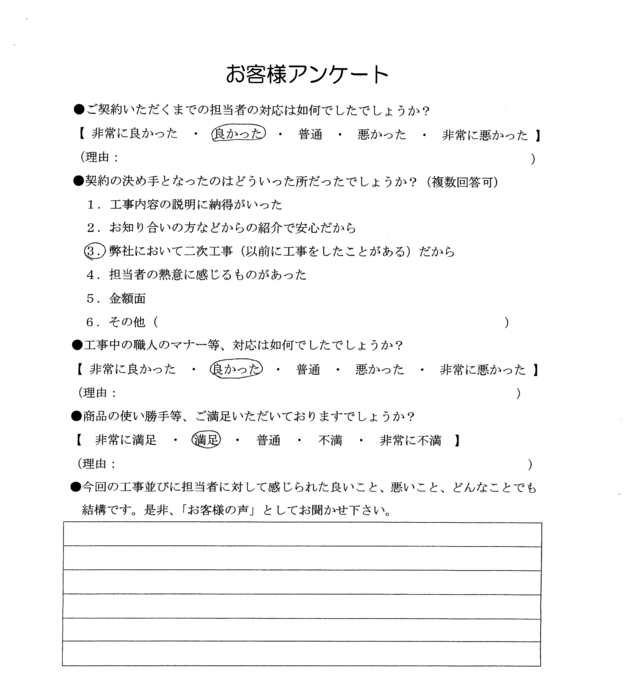 お客様アンケート
●ご契約いただくまでの担当者の対応は如何でしたでしょうか？
【 非常に良かった ・ 良かった ・ 普通 ・ 悪かった ・ 非常に悪かった 】
（理由： ）
●契約の決め手となったのはどういった所だったでしょうか？（複数回答可）
１．工事内容の説明に納得がいった
２．お知り合いの方などからの紹介で安心だから
３．弊社において二次工事（以前に工事をしたことがある）だから
４．担当者の熱意に感じるものがあった
５．金額面
６．その他（ ）
●工事中の職人のマナー等、対応は如何でしたでしょうか？
【 非常に良かった ・ 良かった ・ 普通 ・ 悪かった ・ 非常に悪かった 】
（理由： ）
●商品の使い勝手等、ご満足いただいておりますでしょうか？
【 非常に満足 ・ 満足 ・ 普通 ・ 不満 ・ 非常に不満 】
（理由： ）
●今回の工事並びに担当者に対して感じられた良いこと、悪いこと、どんなことでも
結構です。是非、「お客様の声」としてお聞かせ下さい。